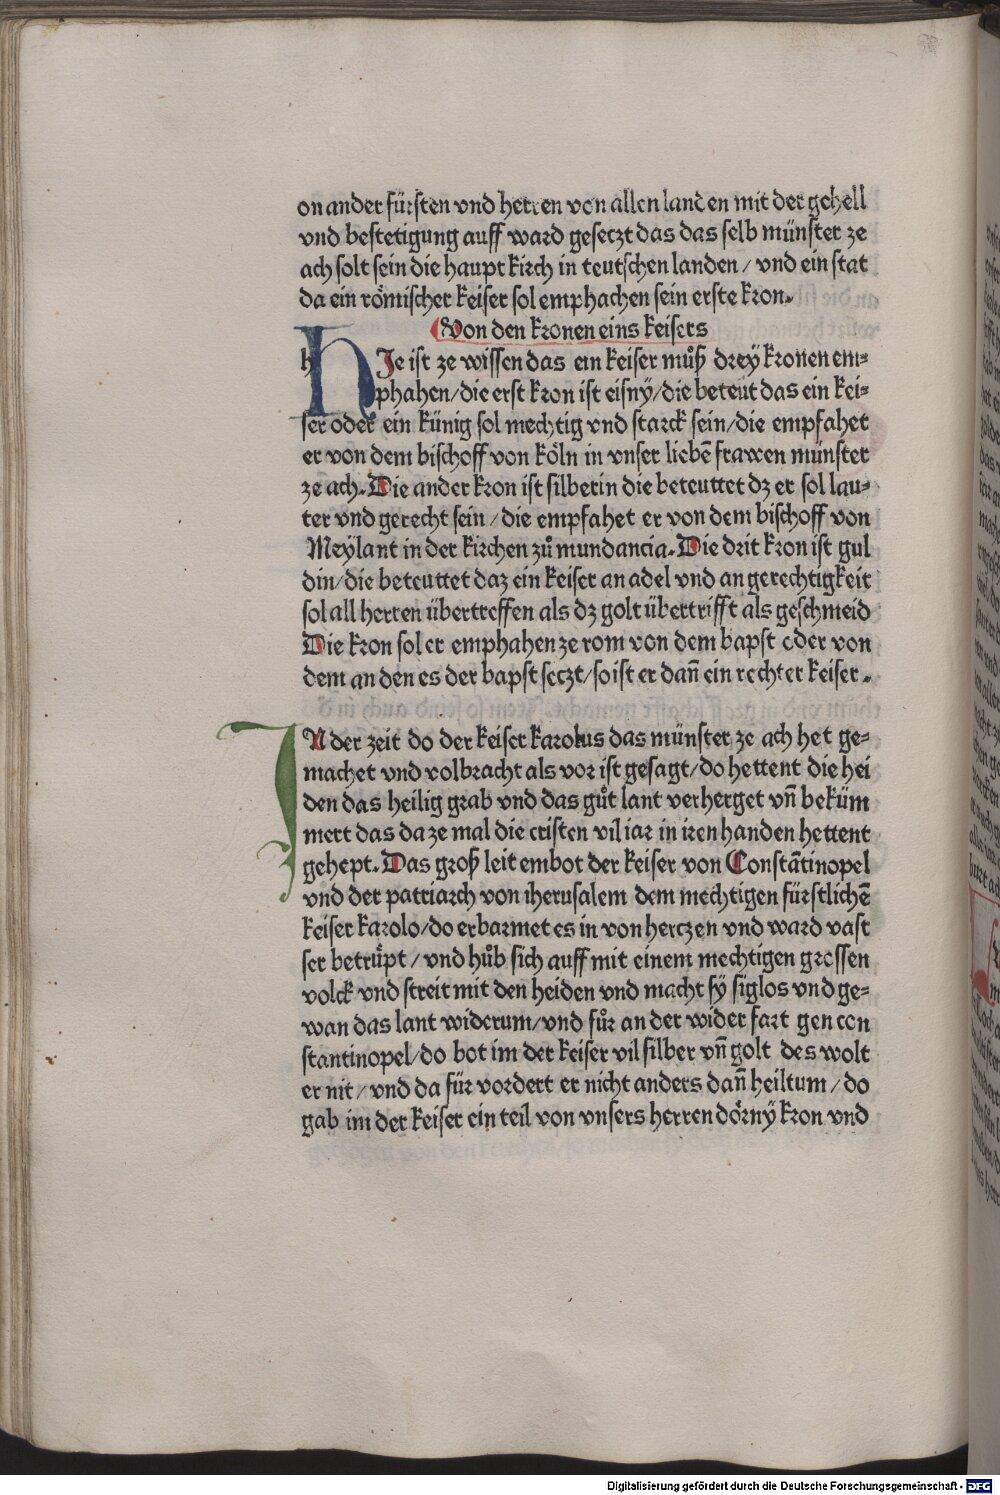 on ander fürsten vnd herren von allen landen mit der gehell
vnd bestetigung auff ward geseczt das das selb münster ze
ach solt sein die haupt kirch in teutschen landen / vnd ein stat
da ein römischer keiser sol emphachen sein erste kron.
Von den kronen eins keisers
HJe ist ze wissen das ein keiser muͦß dreÿ kronen em⸗
phahen / die erst kron ist eisnÿ / die beteut das ein kei⸗
ser oder ein künig sol mechtig vnd starck sein / die empfahet
er von dem bischoff von köln in vnser liebē frawen münster
ze ach. Die ander kron ist silberin die beteuttet dz er sol lau⸗
ter vnd gerecht sein / die empfahet er von dem bischoff von
Meÿlant in der kirchen zuͦ mundancia. Die drit kron ist gul
din / die beteuttet daz ein keiser an adel vnd an gerechtigkeit
sol all herren übertreffen als dz golt übertrifft als geschmeid
Die kron sol er emphahen ze rom von dem bapst oder von
dem an den es der bapst seczt / so ist er dañ ein rechter keiser.
JN der zeit do der keiser karolus das münster ze ach het ge⸗
machet vnd volbracht als vor ist gesagt / do hettent die hei
den das heilig grab vnd das guͦt lant verherget vñ beküm
mert das da ze mal die cristen vil iar in iren handen hettent
gehept. Das groß leit embot der keiser von Constātinopel
vnd der patriarch von iherusalem dem mechtigen fürstlichē
keiser karolo / do erbarmet es in von herczen vnd ward vast
ser betruͤpt / vnd huͦb sich auff mit einem mechtigen grossen
volck vnd streit mit den heiden vnd macht sÿ siglos vnd ge⸗
wan das lant widerum / vnd fuͦr an der wider fart gen con
stantinopel / do bot im der keiser vil silber vñ golt des wolt
er nit / vnd da für vordert er nicht anders dañ heiltum / do
gab im der keiser ein teil von vnsers herren dörnÿ kron vnd
Digitalisierung gefördert durch die Deutsche Forschungsgemeinschaft - DFG